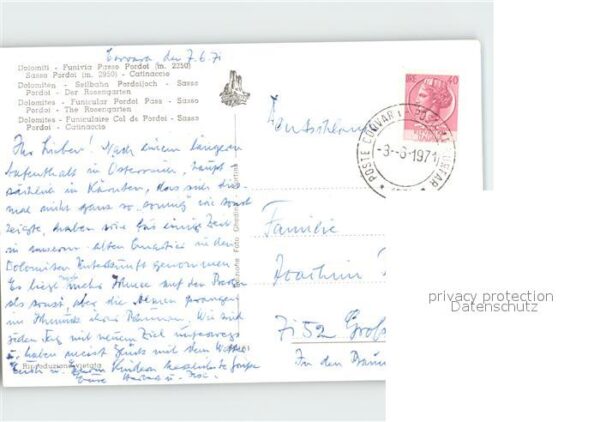 Corvara den 7.6.71
Dolomiti - Funivia Passo Pordoi (m. 2250)
Sasso Pordoi (m. 2950) - Catinaccio
Dolomiten - Seilbahn Pordoijoch - Sasso
Pordoi - Der Rosengarten
Dolomites - Funicular Pordoi Pass - Sasso
Pordoi - The Rosengarten
Dolomites - Funiculaire Col de Pordoi - Sasso
Pordoi - Catinaccio
Ihr Lieben! Nach einem längeren
Aufenthalt in Österreich, haupt-
sächlich in Kärnten, das sich dies-
mal nicht ganz so "sonnig" wie sonst
zeigte, haben wir für einige Zeit
in unserem alten Quartier in den
Dolomiten Unterkunft genommen.
Es liegt noch mehr Schnee auf den Bergen
als sonst, aber die prangen
im Schmuck ihrer Blumen. Wir sind
jeden Tag mit neuem Ziel unterwegs
u. haben meist Glück mit dem Wetter.
Euch u. Kindern herzliche Grüße
Eure
Riproduzione vietata
Foto Ghedina
40
POSTE CORVARA
-3.-6-1971
Deutschland
Familie
Joachim
7152 Groß
In den
privacy protection
Datenschutz